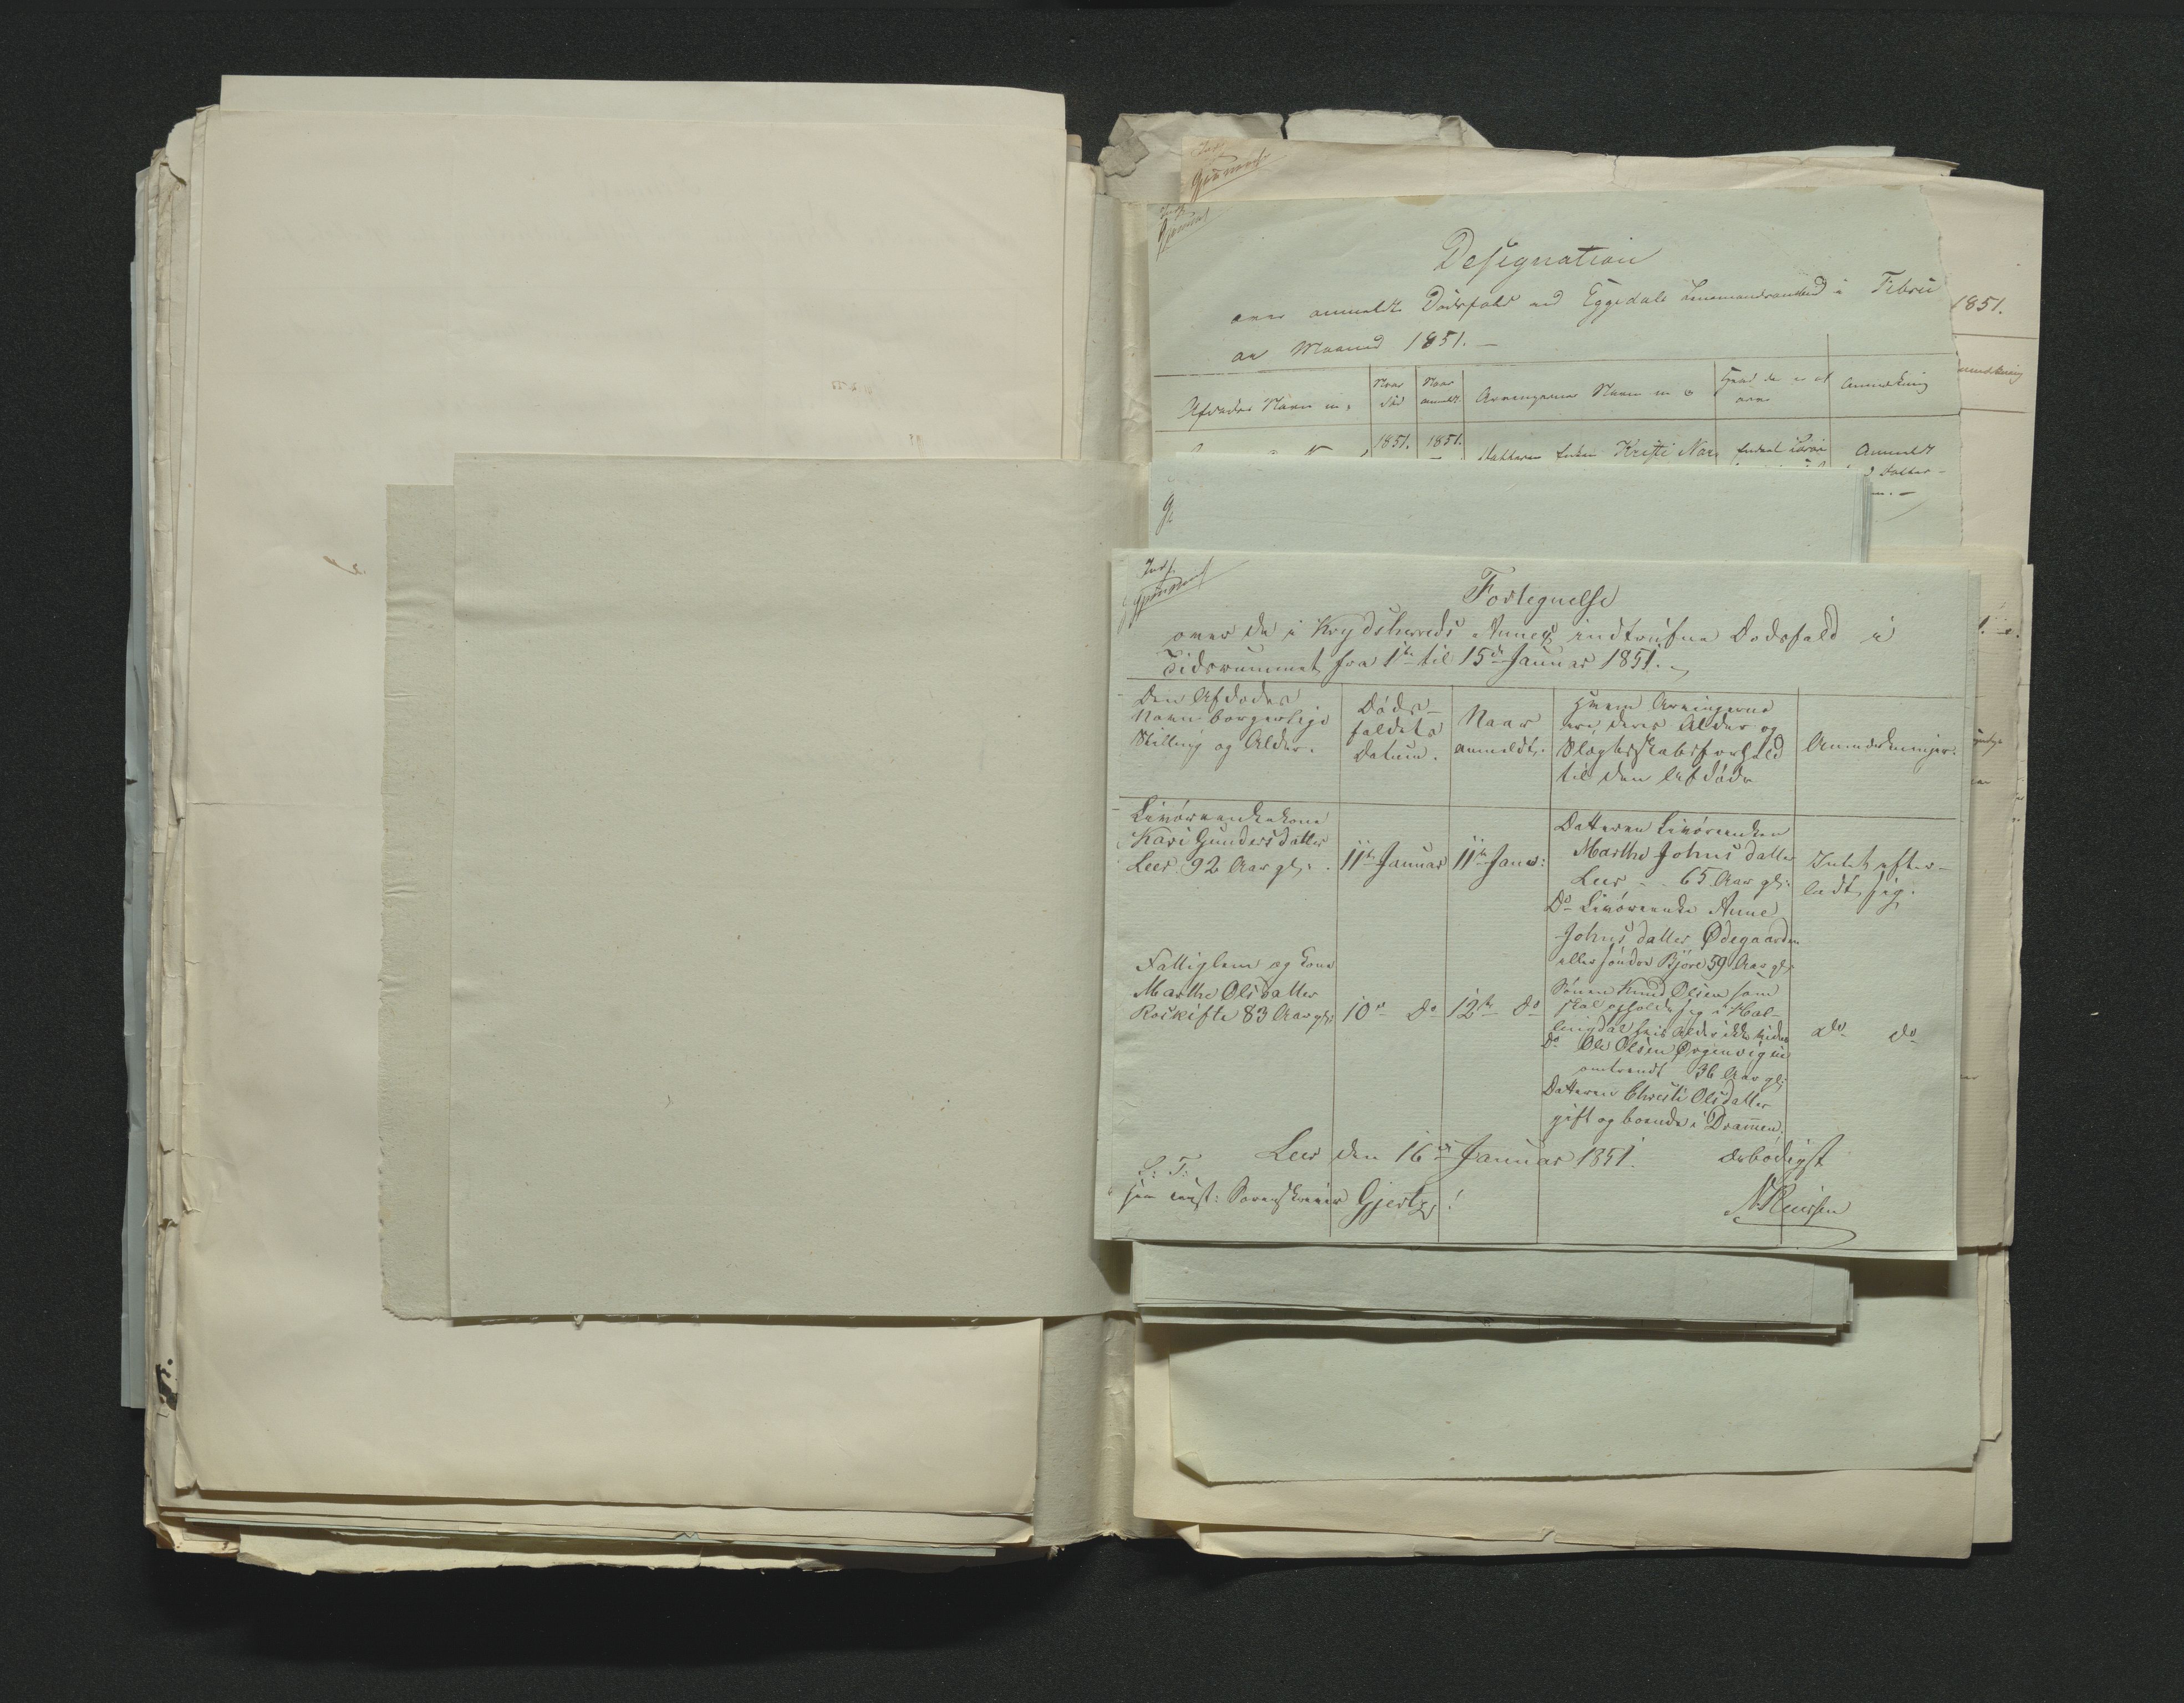 Designation
over anmeldte Dødsfald ved Eggedals Lensmandsombud i Febru
ar Maaned 1851. —
1851.
Afdødes Navn m,
Naar
død
Naar
anmeldt
Arvingernes Navn m
Hvad der er at
arve
Anmerkning
1851. 1851.
Datteren Kristi
Anmeldt
Indf.
Fortegnelse
over de i Krydsherreds Annex indtrufne Dødsfald i
Tidsrummet fra 1te til 15de Januar 1851.
Den Afdødes
Navn borgerlige
Stilling og Alder.
Døds-
faldets
Datum.
Naar
anmeldt.
Hvem Arvingerne
ere, deres Alder og
Slægtsskabsforhold
til den Afdøde
Anmærkninger.
Livørenkekone
Kari Gundersdatter
Leer. 92 Aar gl:
11te Januar
11te Janr:
Datteren Livørenken
Marthe Johnsdatter
Leer - - 65 Aar gl:
Do Livørenke Anne
Johnsdatter Ødegaarden
eller søndre Bjøre 59 Aar gl:
Intet efter-
ladt sig.
Fattiglem og Kone
Marthe Olsdatter
Roskifte 83 Aar gl:
10de Do
12te Do
Sønnen Knud Olsen som
skal opholde sig i Hal-
lingdal hvis Alder ikke vides
Do Ole Olsen Ørgenvigeie
omtrendt 36 Aar gl:
Datteren Christi Olsdatter
gift og boende i Dramen.
do do
Leer den 16de Januar 1851.
ærbødigst
S: T:
Herr const: Sorenskriver Gjertz!